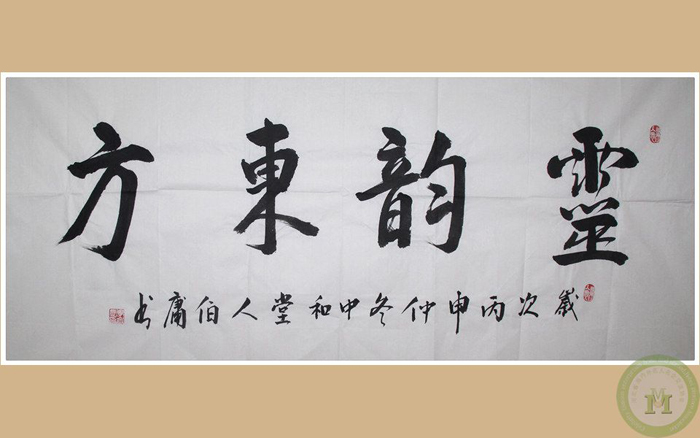 靈韵東方
歲次丙申仲冬中和堂人伯庸书